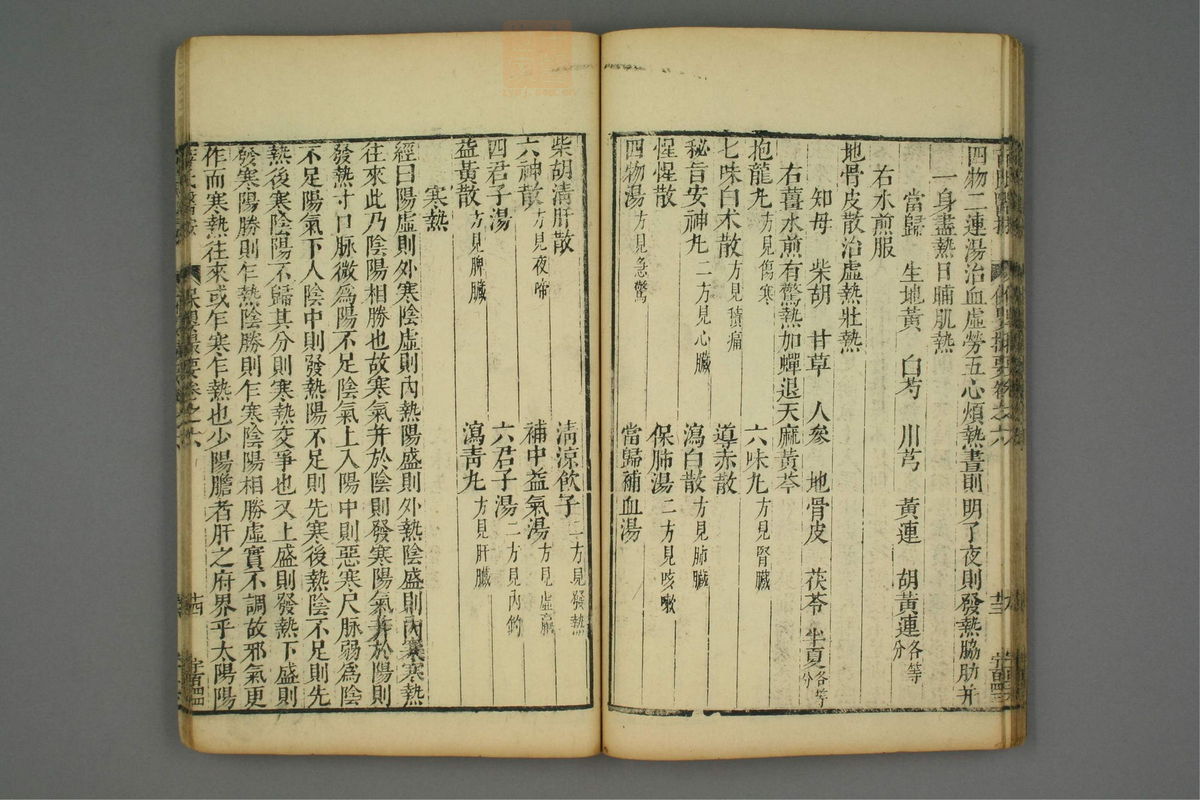 四物二連湯治血虛勞五心煩熱晝則明了夜則發熱脇肋并
一身盡熱日晡肌熱
當歸 生地黃 白芍 川芎 黃連 胡黃連各等分
右水煎服
地骨皮散治虛熱壯熱
知母 柴胡 甘草 人參 地骨皮 茯苓 半夏各等分
右薑水煎有驚熱加蟬退天麻黃芩
抱龍丸方見傷寒 六味丸方見腎臟
七味白朮散方見積痛 導赤散
秘旨安神丸二方見心臟 瀉白散方見肺臟
惺惺散 保肺湯二方見咳嗽
四物湯方見急驚 當歸補血湯
柴胡清肝散 清涼飲子二方見發熱
六神散方見夜啼 補中益氣湯方見虛羸
四君子湯 六君子湯二方見內釣
益黃散方見脾臟 瀉青丸方見肝臟
寒熱
經曰陽虛則外寒陰虛則內熱陽盛則外熱陰盛則內寒寒熱
往來此乃陰陽相勝也故寒氣并於陰則發寒陽氣并於陽則
發熱寸口脉微爲陽不足陰氣上入陽中則惡寒尺脉弱爲陰
不足陽氣下人陰中則發熱陽不足則先寒後熱陰不足則先
熱後寒陰陽不歸其分則寒熱交爭也又上盛則發熱下盛則
發寒陽勝則乍熱陰勝則乍寒陰陽相勝虛實不調故邪氣更
作而寒熱往來或乍寒乍熱也少陽膽者肝之府界乎太陽陽
薛氏醫按 保嬰撮要卷之六 廿四